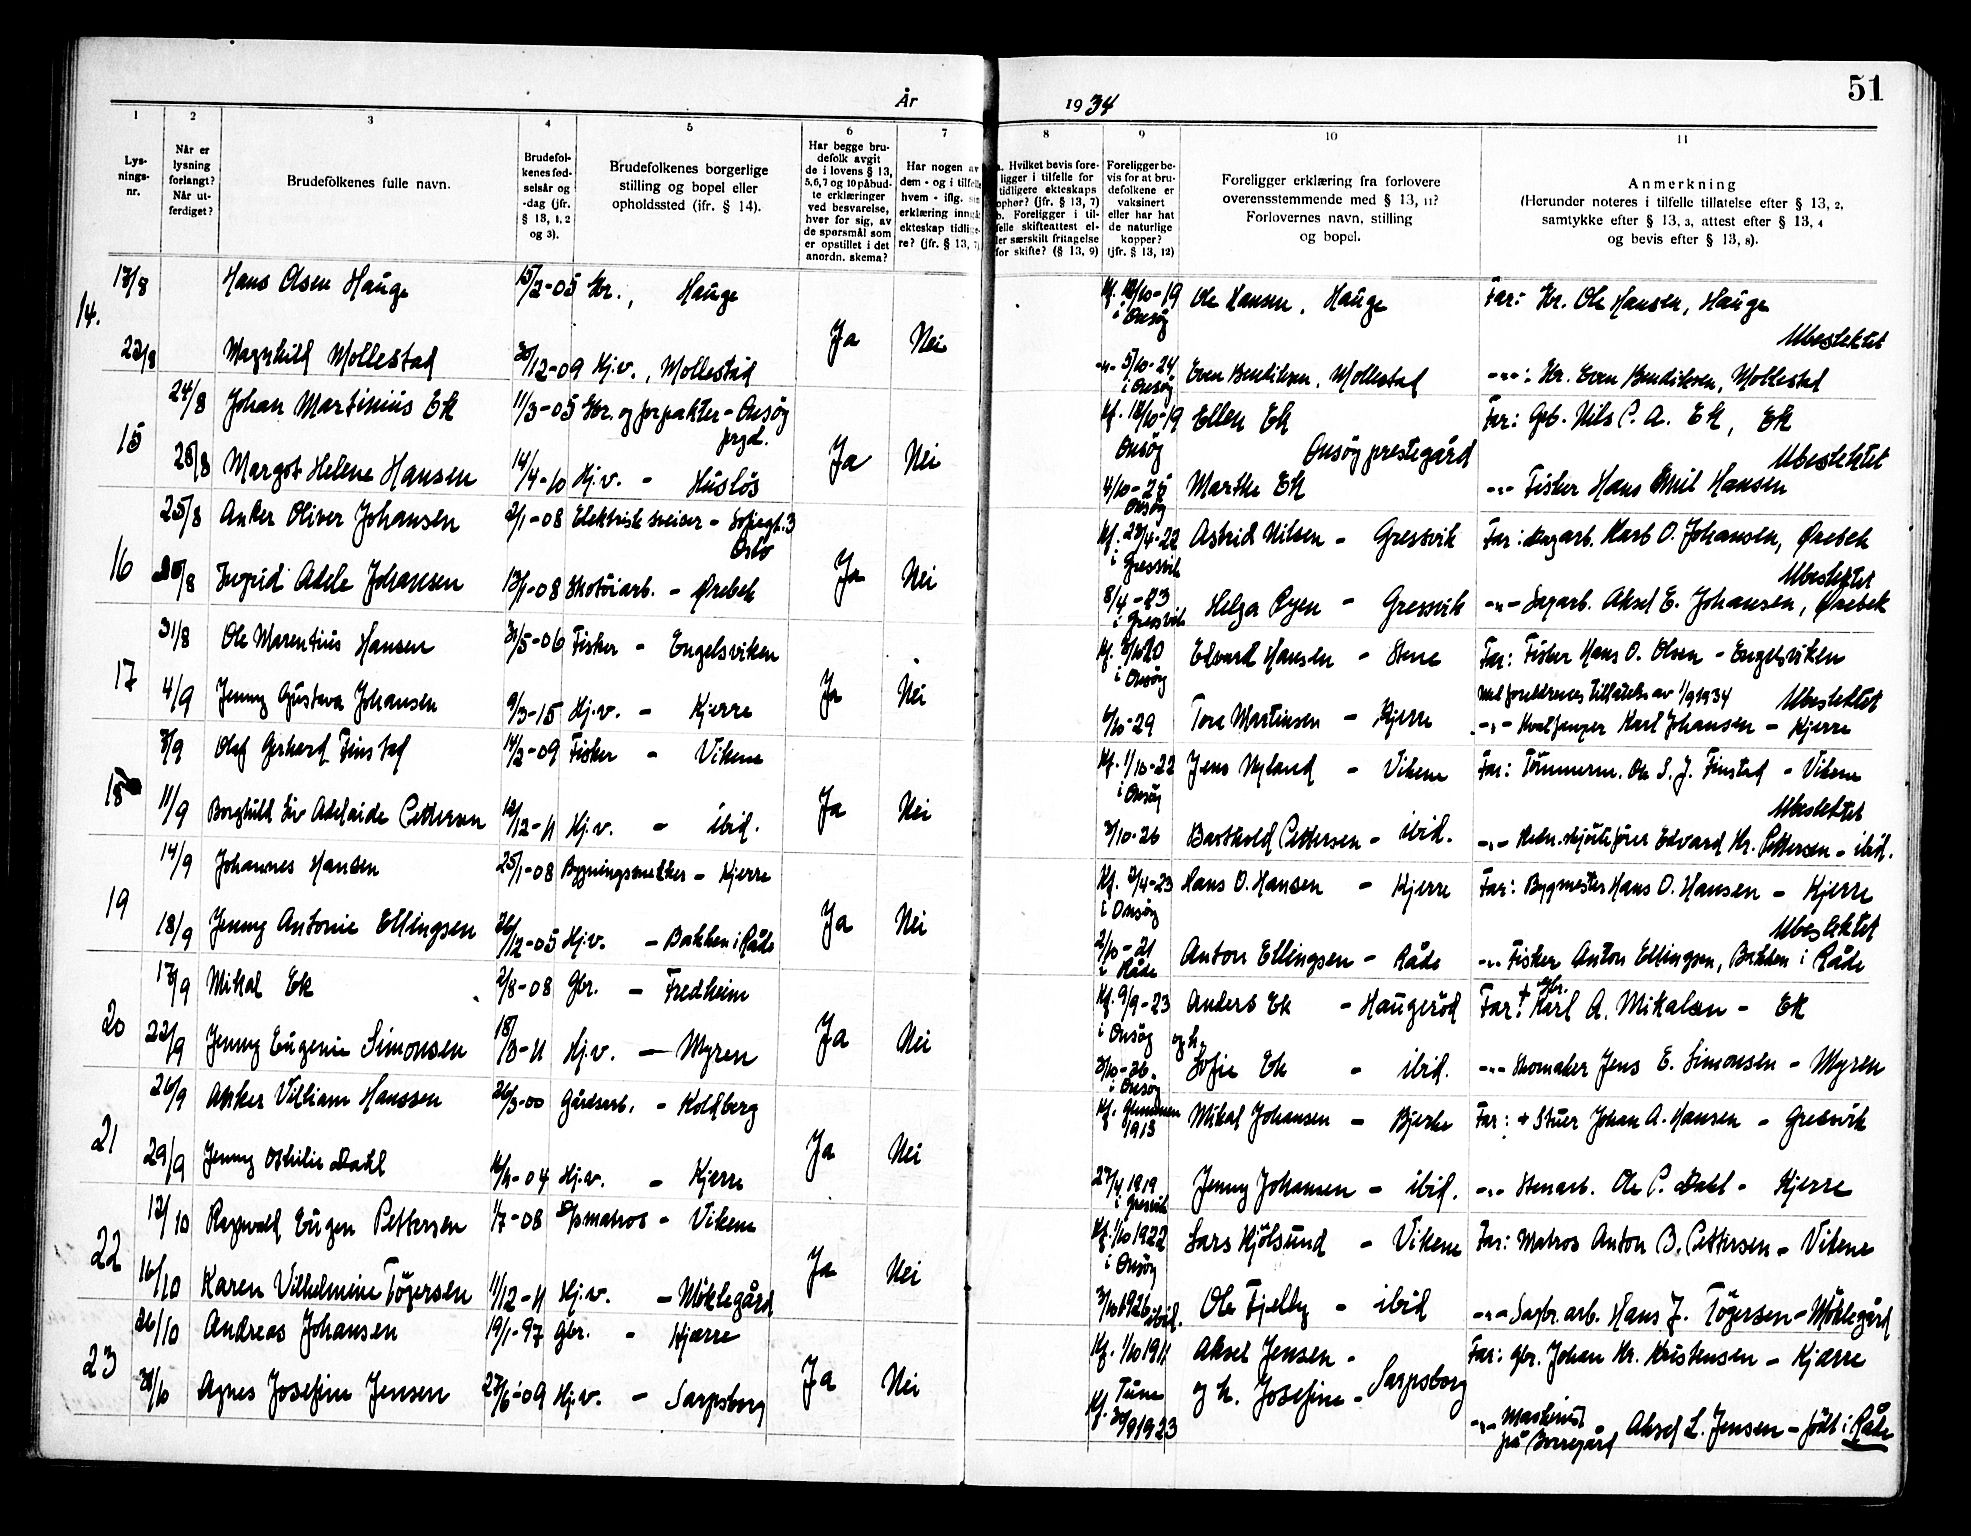 51
År 1934
1 2 3 4 5 6 7 8 9 10 11
Lys-
nings-
nr.
Når er
lysning
forlangt?
Når ut-
ferdiget?
Brudefolkenes fulle navn.
Brudefol-
kenes fød-
selsår og
-dag (jfr.
§ 13, 1, 2
og 3).
Brudefolkenes borgerlige
stilling og bopel eller
opholdssted (ifr. § 14).
Har begge bru-
defolk avgit
de i lovens § 13,
5, 6, 7 og 10 påbud-
te erklæringer
ved besvarelse,
hver for sig, av
de spørsmål som
er opstillet i det
anordn. skema?
Har nogen av
dem - og i tilfelle
hvem - iflg. sin
erklæring inngått
ekteskap tidlige-
re? (jfr. § 13, 7)
a. Hvilket bevis fore-
ligger i tilfelle for
tidligere ekteskaps
ophør? (jfr. § 13, 7)
b. Foreligger i til-
felle skifteattest el-
ler særskilt fritagelse
for skifte? (§ 13, 9)
Foreligger be-
vis for at bru-
defolkene er
vaksinert
eller har hat
de naturlige
kopper?
(jfr. § 13, 12)
Foreligger erklæring fra forlovere
overensstemmende med § 13, 11?
Forlovernes navn, stilling
og bopel.
Anmerkning
(Herunder noteres i tilfelle tillatelse efter § 13, 2,
samtykke efter § 13, 3, attest efter § 13, 4
og bevis efter § 13, 8).
14. 17/8 Hans Olsen Hauge 15/2-05 Gbr., Hauge Ja Nei Kf. 12/10-19 i Onsøy Ole Hansen, Hauge Far: Gbr. Ole Hansen, Hauge
Ubeslektet
22/8 Magnhild Mollestad 30/12-09 Hj.v., Mollestad -"- 5/10-24 i Onsøy Even Bendiksen, Mollestad -"-: Gbr. Even Bendiksen, Mollestad
15 24/8 Johan Martinius Ek 11/3-05 Gbr. og forpakter - Onsøy prgd. Ja Nei Kf. 12/10-19 Onsøy Ellen Ek Far: Gbr. Nils P. A. Ek, Ek
Onsøy prestegård Ubeslektet
28/8 Margot Helene Hansen 14/4-10 Hj.v. - Husløs 4/10-25 Onsøy Marthe Ek -"- Fisker Hans Emil Hansen
16 25/8 Anker Oliver Johansen 2/1-08 Elektrisk sveiser - Sofiegt. 3 Oslo Ja Nei Kf. 23/4-22 i Gressvik Astrid Nilsen - Gressvik Far: arb. Karl O. Johansen, Ørebek
Ubeslektet
30/8 Ingrid Adele Johansen 13/1-08 Skotøiarb. - Ørebek 8/4-23 i Gressvik Helga Øyen - Gressvik -"- Sagarb. Aksel E. Johansen, Ørebek
17 31/8 Ole Marentius Hansen 31/5-06 Fisker - Engelsviken Ja Nei Kf. 3/10 20 i Onsøy Edvard Hansen - Stene Far: Fisker Hans O. Olsen - Engelsviken
Med foreldrenes tillatelse av 1/9 1934 Ubeslektet
4/9 Jenny Gustava Johansen 9/3-15 Hj.v. - Kjerre 6/10-29 Tora Martinsen - Kjerre -"- Hvalfanger Karl Johansen - Kjerre
18 7/9 Olaf Gerhard Finstad 14/2-09 Fisker - Vikene Ja Nei Kf. 1/10-22 i Onsøy Jens Nyland - Vikene Far: Tømmerm. Ole S. J. Finstad - Vikene
Ubeslektet
11/9 Borghild Liv Adelaide Pettersen 12/12-11 Hj.v. - ibid. 3/10-26 Barthold Pettersen - ibid. -"- Redn.skøitefører Edvard Kr. Pettersen - ibid.
19 14/9 Johannes Hansen 25/1-08 Bygningssnekker - Kjerre Ja Nei Kf. 2/4-23 i Onsøy Hans O. Hansen - Kjerre Far: Bygmester Hans O. Hansen - Kjerre
Ubeslektet
18/9 Jenny Antonie Ellingsen 26/12-05 Hj.v. - Bakken i Råde 2/10-21 i Råde Anton Ellingsen - Råde -"- Fisker Anton Ellingsen, Bakken i Råde
20 17/9 Mikal Ek 2/8-08 Gbr. - Fredheim Ja Nei Kf. 9/9-23 i Onsøy Anders Ek - Haugerød Far: † Gbr. Karl A. Mikalsen - Ek
22/9 Jenny Eugenie Simonsen 18/3-11 Hj.v. - Myren 3/10-26 i Onsøy og h. Sofie Ek - ibid. -"- Skomaker Jens E. Simonsen - Myren
21 26/9 Anker Villiam Hanssen 26/3-00 Gårdsarb. - Kolberg Ja Nei Kf. Glemmen 1913 Mikal Johansen - Bjerke Far: † Stuer Johan A. Hansen - Gresvik
29/9 Jenny Othilie Dahl Hj.v. - Kjerre 27/4 1919 i Gresvik Jenny Johansen - ibid. -"- Stenarb. Ole P. Dahl - Kjerre
22 12/10 Ragnvald Eugen Pettersen 1/7-08 matros - Vikene Ja Nei Kf. 1/10 1922 i Onsøy Lars Kjølsund - Vikene Far: Matros Anton B. Pettersen - Vikene
16/10 Karen Vilhelmine Tøgersen 11/12-11 Hj.v. - Møklegård 3/10 1926 ibid. Ole Fjelby - ibid -"- Sagbr.arb. Hans J. Tøgersen - Møklegård
23 26/10 Andreas Johansen 19/1-97 Gbr. - Kjærre Ja Nei Kf. 1/10 1911 Aksel Jensen - Far: Gbr. Johan Kr. Kristensen - Kjærre
30/10 Agnes Josefine Jensen 27/6-09 Hj.v. - Sarpsborg Kf. Tune 30/9 1923 og h. Josefine - Sarpsborg -"- Maskinist på Borregård - Aksel L. Jensen - født i Råde